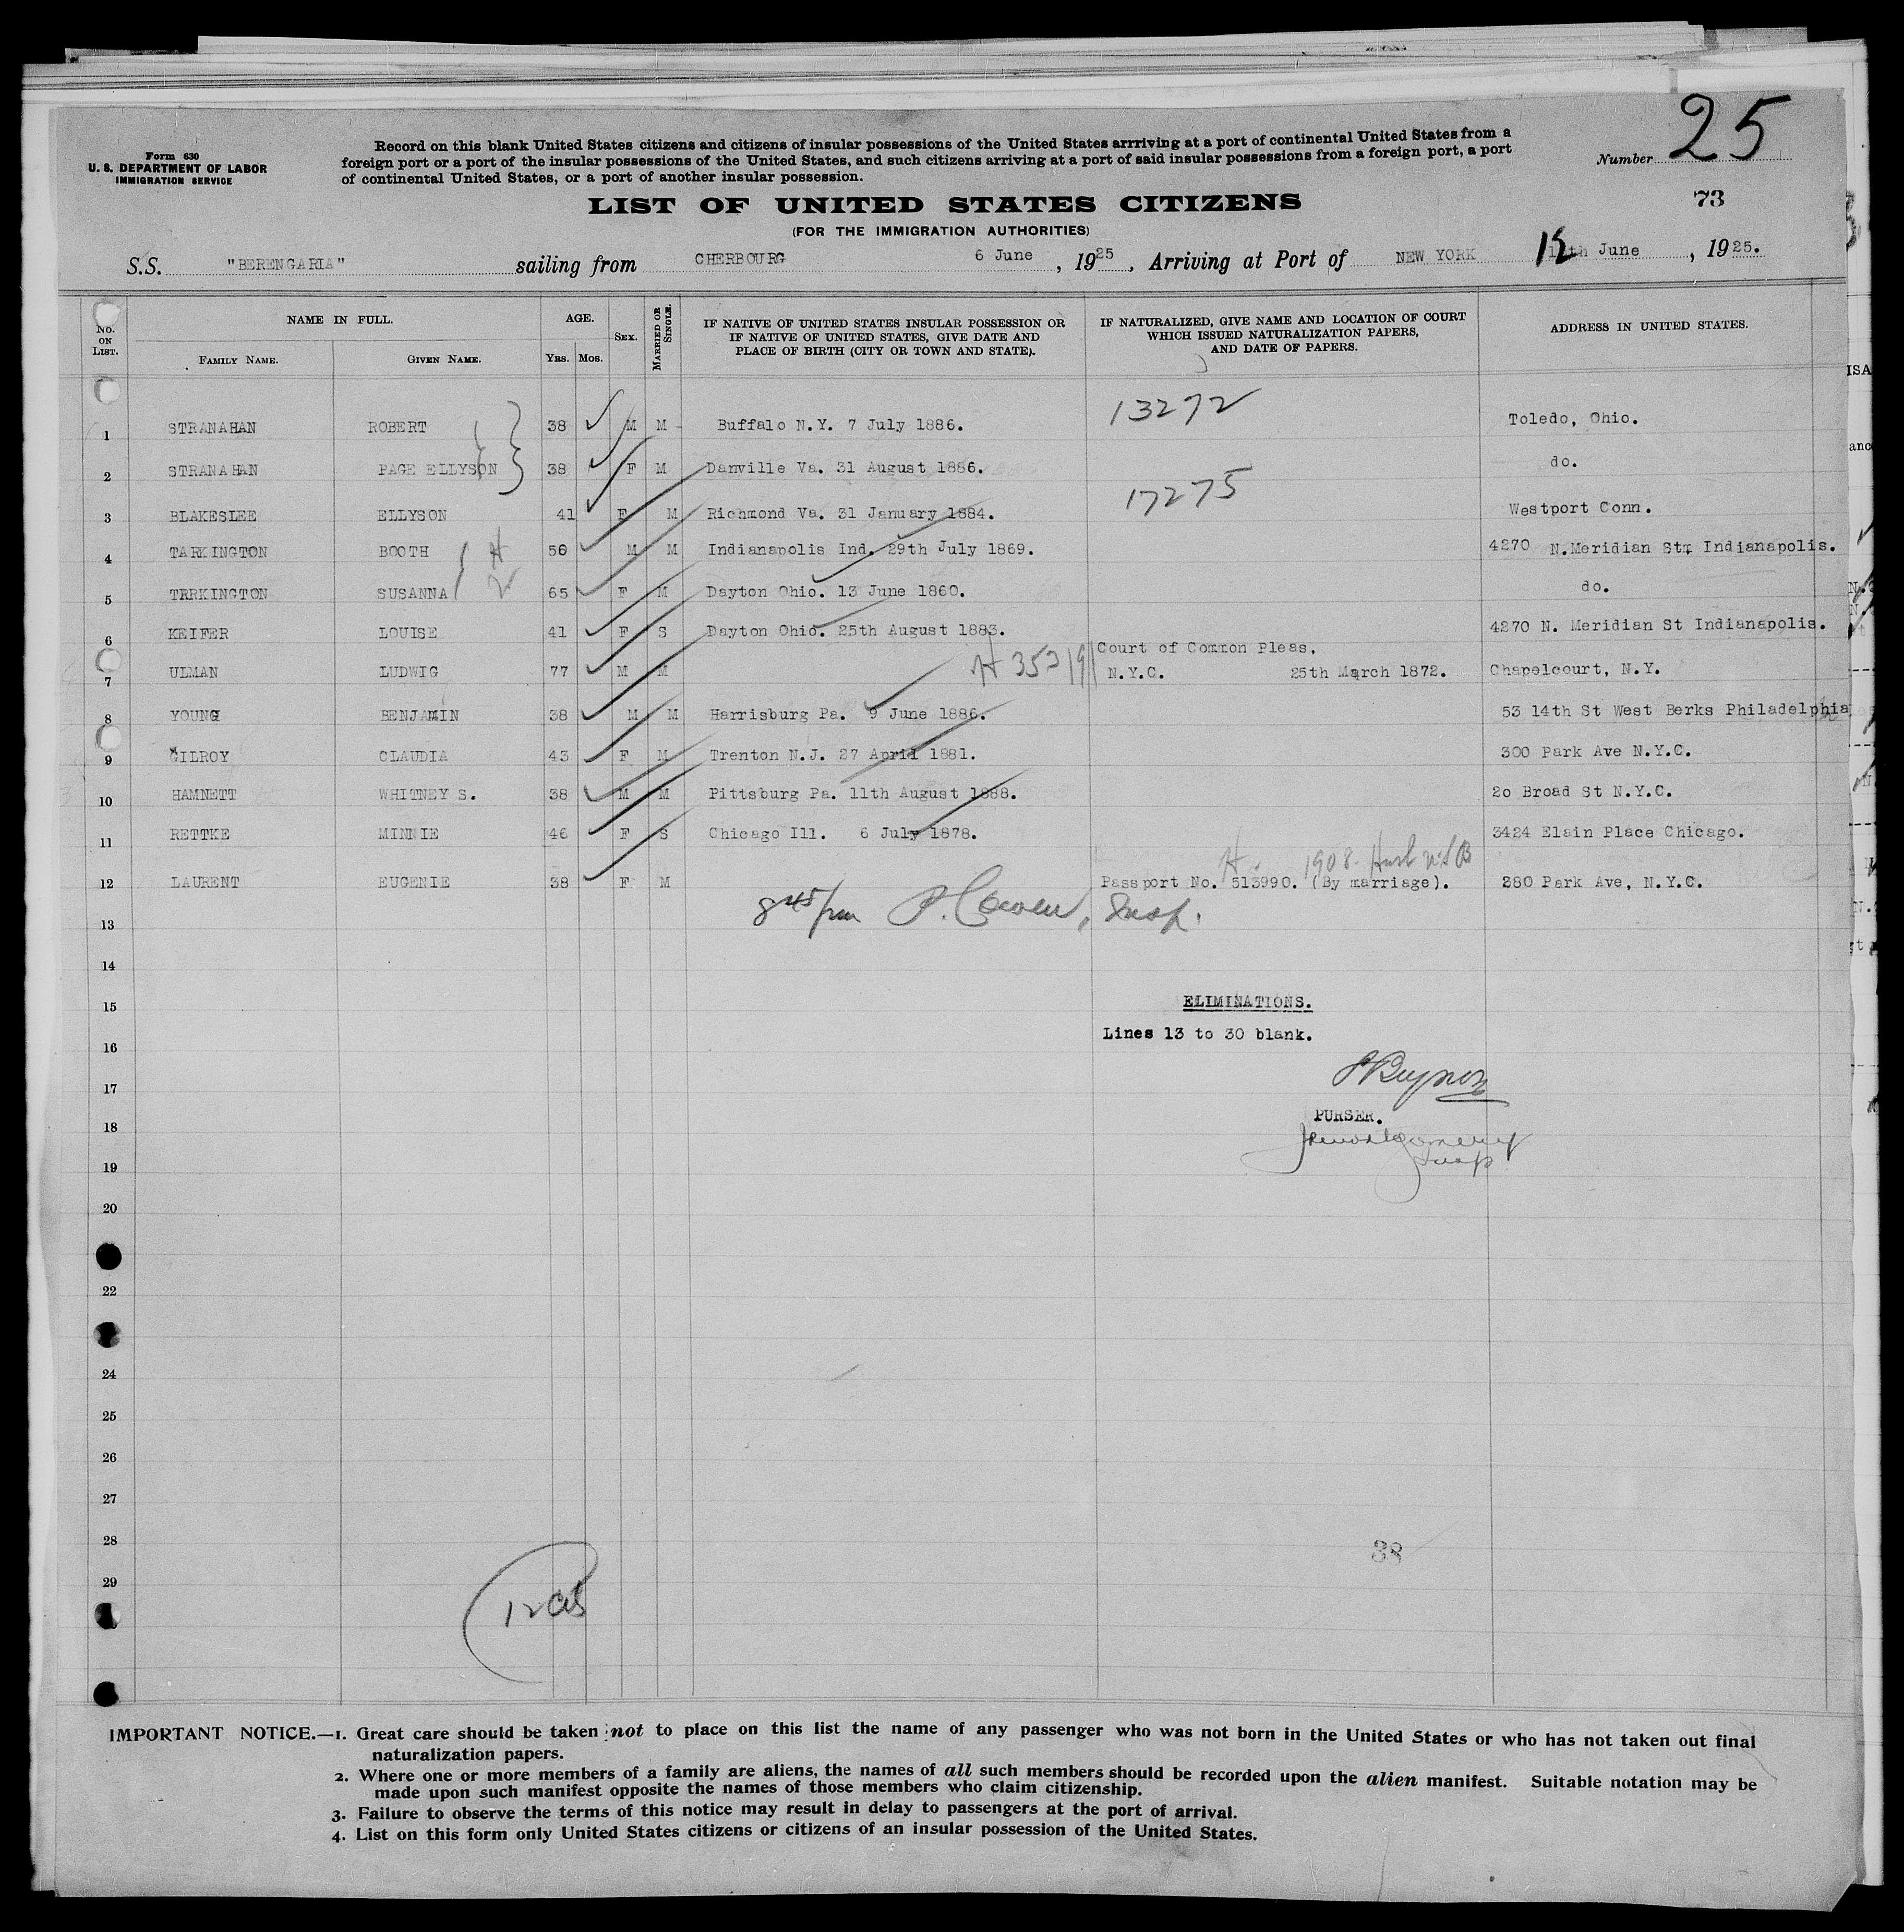 25
Form 630
U. S. DEPARTMENT OF LABOR
IMMIGRATION SERVICE
Record on this blank United States citizens and citizens of insular possessions of the United States arrriving at a port of continental United States from a
foreign port or a port of the insular possessions of the United States, and such citizens arriving at a port of said insular possessions from a foreign port, a port
of continental United States, or a port of another insular possession.
Number
73
LIST OF UNITED STATES CITIZENS
(FOR THE IMMIGRATION AUTHORITIES)
S.S. "BERENGARIA" sailing from CHERBOURG 6 June, 1925, Arriving at Port of NEW YORK 12th June, 1925.
No. ON LIST. NAME IN FULL. FAMILY NAME. GIVEN NAME. AGE. YRS. MOS. SEX. MARRIED OR SINGLE. IF NATIVE OF UNITED STATES INSULAR POSSESSION OR IF NATIVE OF UNITED STATES, GIVE DATE AND PLACE OF BIRTH (CITY OR TOWN AND STATE). IF NATURALIZED, GIVE NAME AND LOCATION OF COURT WHICH ISSUED NATURALIZATION PAPERS, AND DATE OF PAPERS. ADDRESS IN UNITED STATES.
1 STRANAHAN ROBERT 38 M M Buffalo N.Y. 7 July 1886. 13272 Toledo, Ohio.
2 STRANAHAN PAGE ELLYSON 38 F M Danville Va. 31 August 1886. do.
17275
3 BLAKESLEE ELLYSON 41 F M Richmond Va. 31 January 1884. Westport Conn.
4 TARKINGTON BOOTH 56 M M Indianapolis Ind. 29th July 1869. 4270 N.Meridian St. Indianapolis.
5 TRRKINGTON SUSANNA 65 F M Dayton Ohio. 13 June 1860. do.
6 KEIFER LOUISE 41 F S Dayton Ohio. 25th August 1883. 4270 N. Meridian St Indianapolis.
Court of Common Pleas,
7 ULMAN LUDWIG 77 M M N.Y.C. 25th March 1872. Chapelcourt, N.Y.
8 YOUNG BENJAMIN 38 M M Harrisburg Pa. 9 June 1886. 53 14th St West Berks Philadelphia
9 GILROY CLAUDIA 43 F M Trenton N.J. 27 April 1881. 300 Park Ave N.Y.C.
10 HAMNETT WHITNEY S. 38 M M Pittsburg Pa. 11th August 1888. 20 Broad St N.Y.C.
11 RETTKE MINNIE 46 F S Chicago Ill. 6 July 1878. 3424 Elain Place Chicago.
1908
12 LAURENT EUGENIE 38 F M Passport No. 513990. (By marriage). 280 Park Ave, N.Y.C.
13 Insp.
14
15 ELIMINATIONS.
Lines 13 to 30 blank.
16
17
PURSER.
18
19 Insp
20
22
24
25
26
27
28
38
29
IMPORTANT NOTICE.—1. Great care should be taken not to place on this list the name of any passenger who was not born in the United States or who has not taken out final
naturalization papers.
2. Where one or more members of a family are aliens, the names of all such members should be recorded upon the alien manifest. Suitable notation may be
made upon such manifest opposite the names of those members who claim citizenship.
3. Failure to observe the terms of this notice may result in delay to passengers at the port of arrival.
4. List on this form only United States citizens or citizens of an insular possession of the United States.